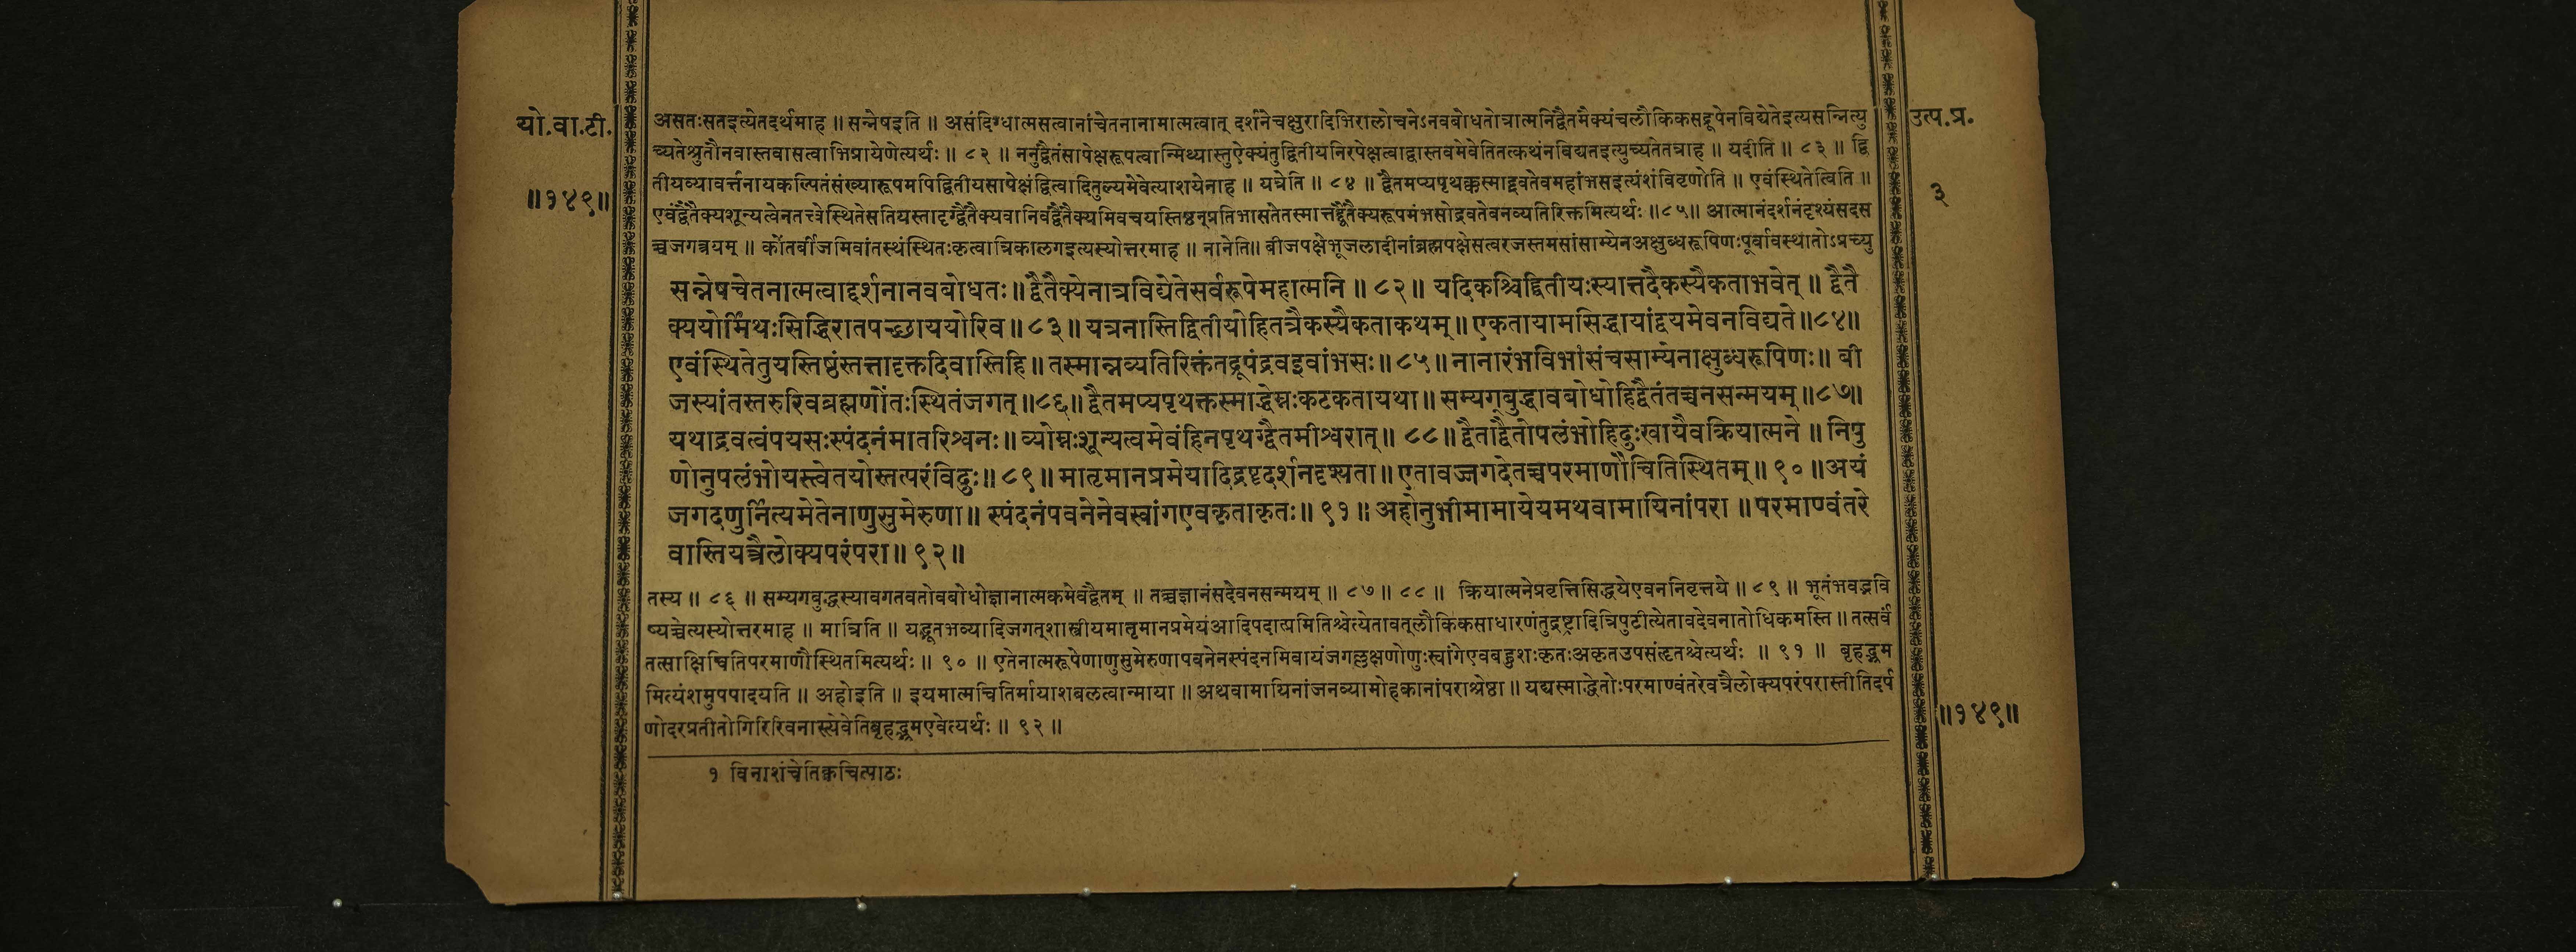 यो.वा.टी.
॥१४९॥
असतःसतइत्येतदर्थमाह ॥ सन्नेषइति ॥ असंदिग्धात्मसत्वानांचेतनानामात्मत्वात् दर्शनेचक्षुरादिभिरालोचनेऽनवबोधतोत्रात्मनिद्वैतमैक्यंचलौकिकसद्रूपेनविद्येतेइत्यसन्नित्यु
च्यतेश्रुतौनवास्तवासत्वाभिप्रायेणेत्यर्थः ॥ ८२ ॥ ननुद्वैतंसापेक्षरूपत्वान्मिथ्यास्तुऐक्यंतुद्वितीयनिरपेक्षत्वाद्वास्तवमेवेतितत्कथंनविद्यतइत्युच्यतेतत्राह ॥ यदीति ॥ ८३ ॥ द्वि
तीयव्यावर्त्तनायकल्पितंसंख्यारूपमपिद्वितीयसापेक्षंद्वित्वादितुल्यमेवेत्याशयेनाह ॥ यत्रेति ॥ ८४ ॥ द्वैतमप्यपृथक्कस्माद्द्रवतेवमहांभसइत्यंशंविवृणोति ॥ एवंस्थितेत्विति ॥
एवंद्वैतैक्यशून्यत्वेनतत्त्वेस्थितेसतियस्तादृग्द्वैतैक्यवानिवद्वैतैक्यमिवचयस्तिष्ठन्प्रतिभासतेतस्मात्तद्द्वैतैक्यरूपमंभसोद्रवतेवनव्यतिरिक्तमित्यर्थः ॥८५॥ आत्मानंदर्शनंदृश्यंसदस
च्चजगत्त्रयम् ॥ कोंतर्बीजमिवांतस्थंस्थितःकृत्वात्रिकालगइत्यस्योत्तरमाह ॥ नानेति॥ बीजपक्षेभूजलादीनांब्रह्मपक्षेसत्वरजस्तमसांसाम्येनअक्षुब्धरूपिणःपूर्वावस्थातोऽप्रच्यु
सन्नेषचेतनात्मत्वाद्दर्शनानवबोधतः॥ द्वैतैक्येनात्रविद्येतेसर्वरूपेमहात्मनि ॥ ८२॥ यदिकश्चिद्द्वितीयःस्यात्तदैकस्यैकताभवेत् ॥ द्वैतै
क्ययोर्मिथःसिद्धिरातपच्छाययोरिव॥ ८३॥ यत्रनास्तिद्वितीयोहितत्रैकस्यैकताकथम्॥ एकतायामसिद्धायांद्वयमेवनविद्यते॥८४॥
एवंस्थितेतुयस्तिष्ठंस्तत्तादृक्तदिवास्तिहि॥ तस्मान्नव्यतिरिक्तंतद्रूपंद्रवइवांभसः॥ ८५॥ नानारंभविभांसंचसाम्येनाक्षुब्धरूपिणः॥ बी
जस्यांतस्तरुरिवब्रह्मणोंतःस्थितंजगत्॥८६॥ द्वैतमप्यपृथक्तस्माद्धेम्नःकटकतायथा॥ सम्यग्बुद्धावबोधोहिद्वैतंतच्चनसन्मयम्॥८७॥
यथाद्रवत्वंपयसःस्पंदनंमातरिश्वनः॥ व्योम्नःशून्यत्वमेवंहिनपृथग्द्वैतमीश्वरात्॥ ८८॥ द्वैताद्वैतोपलंभोहिदुःखायैवक्रियात्मने ॥ निपु
णोनुपलंभोयस्त्वेतयोस्तत्परंविदुः॥ ८९॥ मातृमानप्रमेयादिद्रष्टृदर्शनदृश्यता॥ एतावज्जगदेतच्चपरमाणौचितिस्थितम्॥ ९० ॥ अयं
जगदणुर्नित्यमेतेनाणुसुमेरुणा॥ स्पंदनंपवनेनेवस्वांगएवकृताकृतः॥ ९१॥ अहोनुभीमामायेयमथवामायिनांपरा ॥ परमाण्वंतरे
वास्तियत्त्रैलोक्यपरंपरा॥ ९२॥
तस्य ॥ ८६ ॥ सम्यगबुद्धस्यावगतवतोवबोधोज्ञानात्मकमेवद्वैतम् ॥ तच्चज्ञानंसदैवनसन्मयम् ॥ ८७ ॥ ८८ ॥ क्रियात्मनेप्रवृत्तिसिद्धयेएवननिवृत्तये ॥ ८९ ॥ भूतंभवद्भवि
ष्यच्चेत्यस्योत्तरमाह ॥ मात्रिति ॥ यद्भूतभव्यादिजगत्शास्त्रीयमातृमानप्रमेयंआदिपदात्प्रमितिश्चेत्येतावत्लौकिकसाधारणंतुद्रष्ट्रादित्रिपुटीत्येतावदेवनातोधिकमस्ति॥ तत्सर्वं
तत्साक्षिचितिपरमाणौस्थितमित्यर्थः ॥ ९० ॥ एतेनात्मरूपेणाणुसुमेरुणापवनेनस्पंदनमिवायंजगल्लक्षणोणुःस्वांगेएवबहुशःकृतःअकृतउपसंहृतश्चेत्यर्थः ॥ ९१ ॥ बृहद्भ्रम
मित्यंशमुपपादयति ॥ अहोइति ॥ इयमात्मचितिर्मायाशबलत्वान्माया ॥ अथवामायिनांजनव्यामोहकानांपराश्रेष्ठा॥ यद्यस्माद्धेतोःपरमाण्वंतरेवत्रैलोक्यपरंपरास्तीतिदर्प
णोदरप्रतीतोगिरिरिवनास्त्येवेतिबृहद्भ्रमएवेत्यर्थः ॥ ९२ ॥
१ विनाशंचेतिक्वचित्पाठः
उत्प.प्र.
३
॥१४९॥